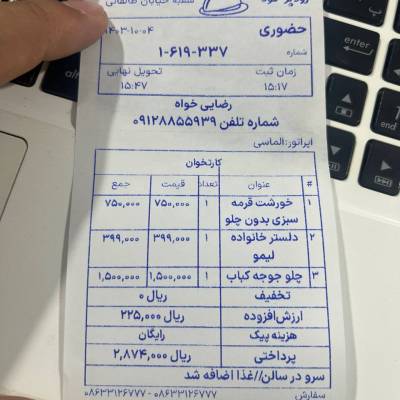 شعبه خیابان طالقانی
حضوری
۱۴۰۳-۱۰-۰۴
شماره
۱-۶۱۹-۳۳۷
زمان ثبت
تحویل نهایی
۱۵:۱۷
۱۵:۴۷
رضایی خواه
شماره تلفن ۰۹۱۲۸۸۵۵۹۳۹
اپراتور:الماسی
کارتخوان
# عنوان تعداد قیمت جمع
۱ خورشت قرمه سبزی بدون چلو ۱ ۷۵۰,۰۰۰ ۷۵۰,۰۰۰
۲ دلستر خانواده لیمو ۱ ۳۹۹,۰۰۰ ۳۹۹,۰۰۰
۳ چلو جوجه کباب ۱ ۱,۵۰۰,۰۰۰ ۱,۵۰۰,۰۰۰
تخفیف ۰ ریال
ارزش‌افزوده ۲۲۵,۰۰۰ ریال
هزینه پیک رایگان
پرداختی ۲,۸۷۴,۰۰۰ ریال
سرو در سالن//غذا اضافه شد
سفارش ۰۸۶۳۳۱۲۶۷۷۷ - ۰۸۶۳۳۱۲۶۷۷۷
enter